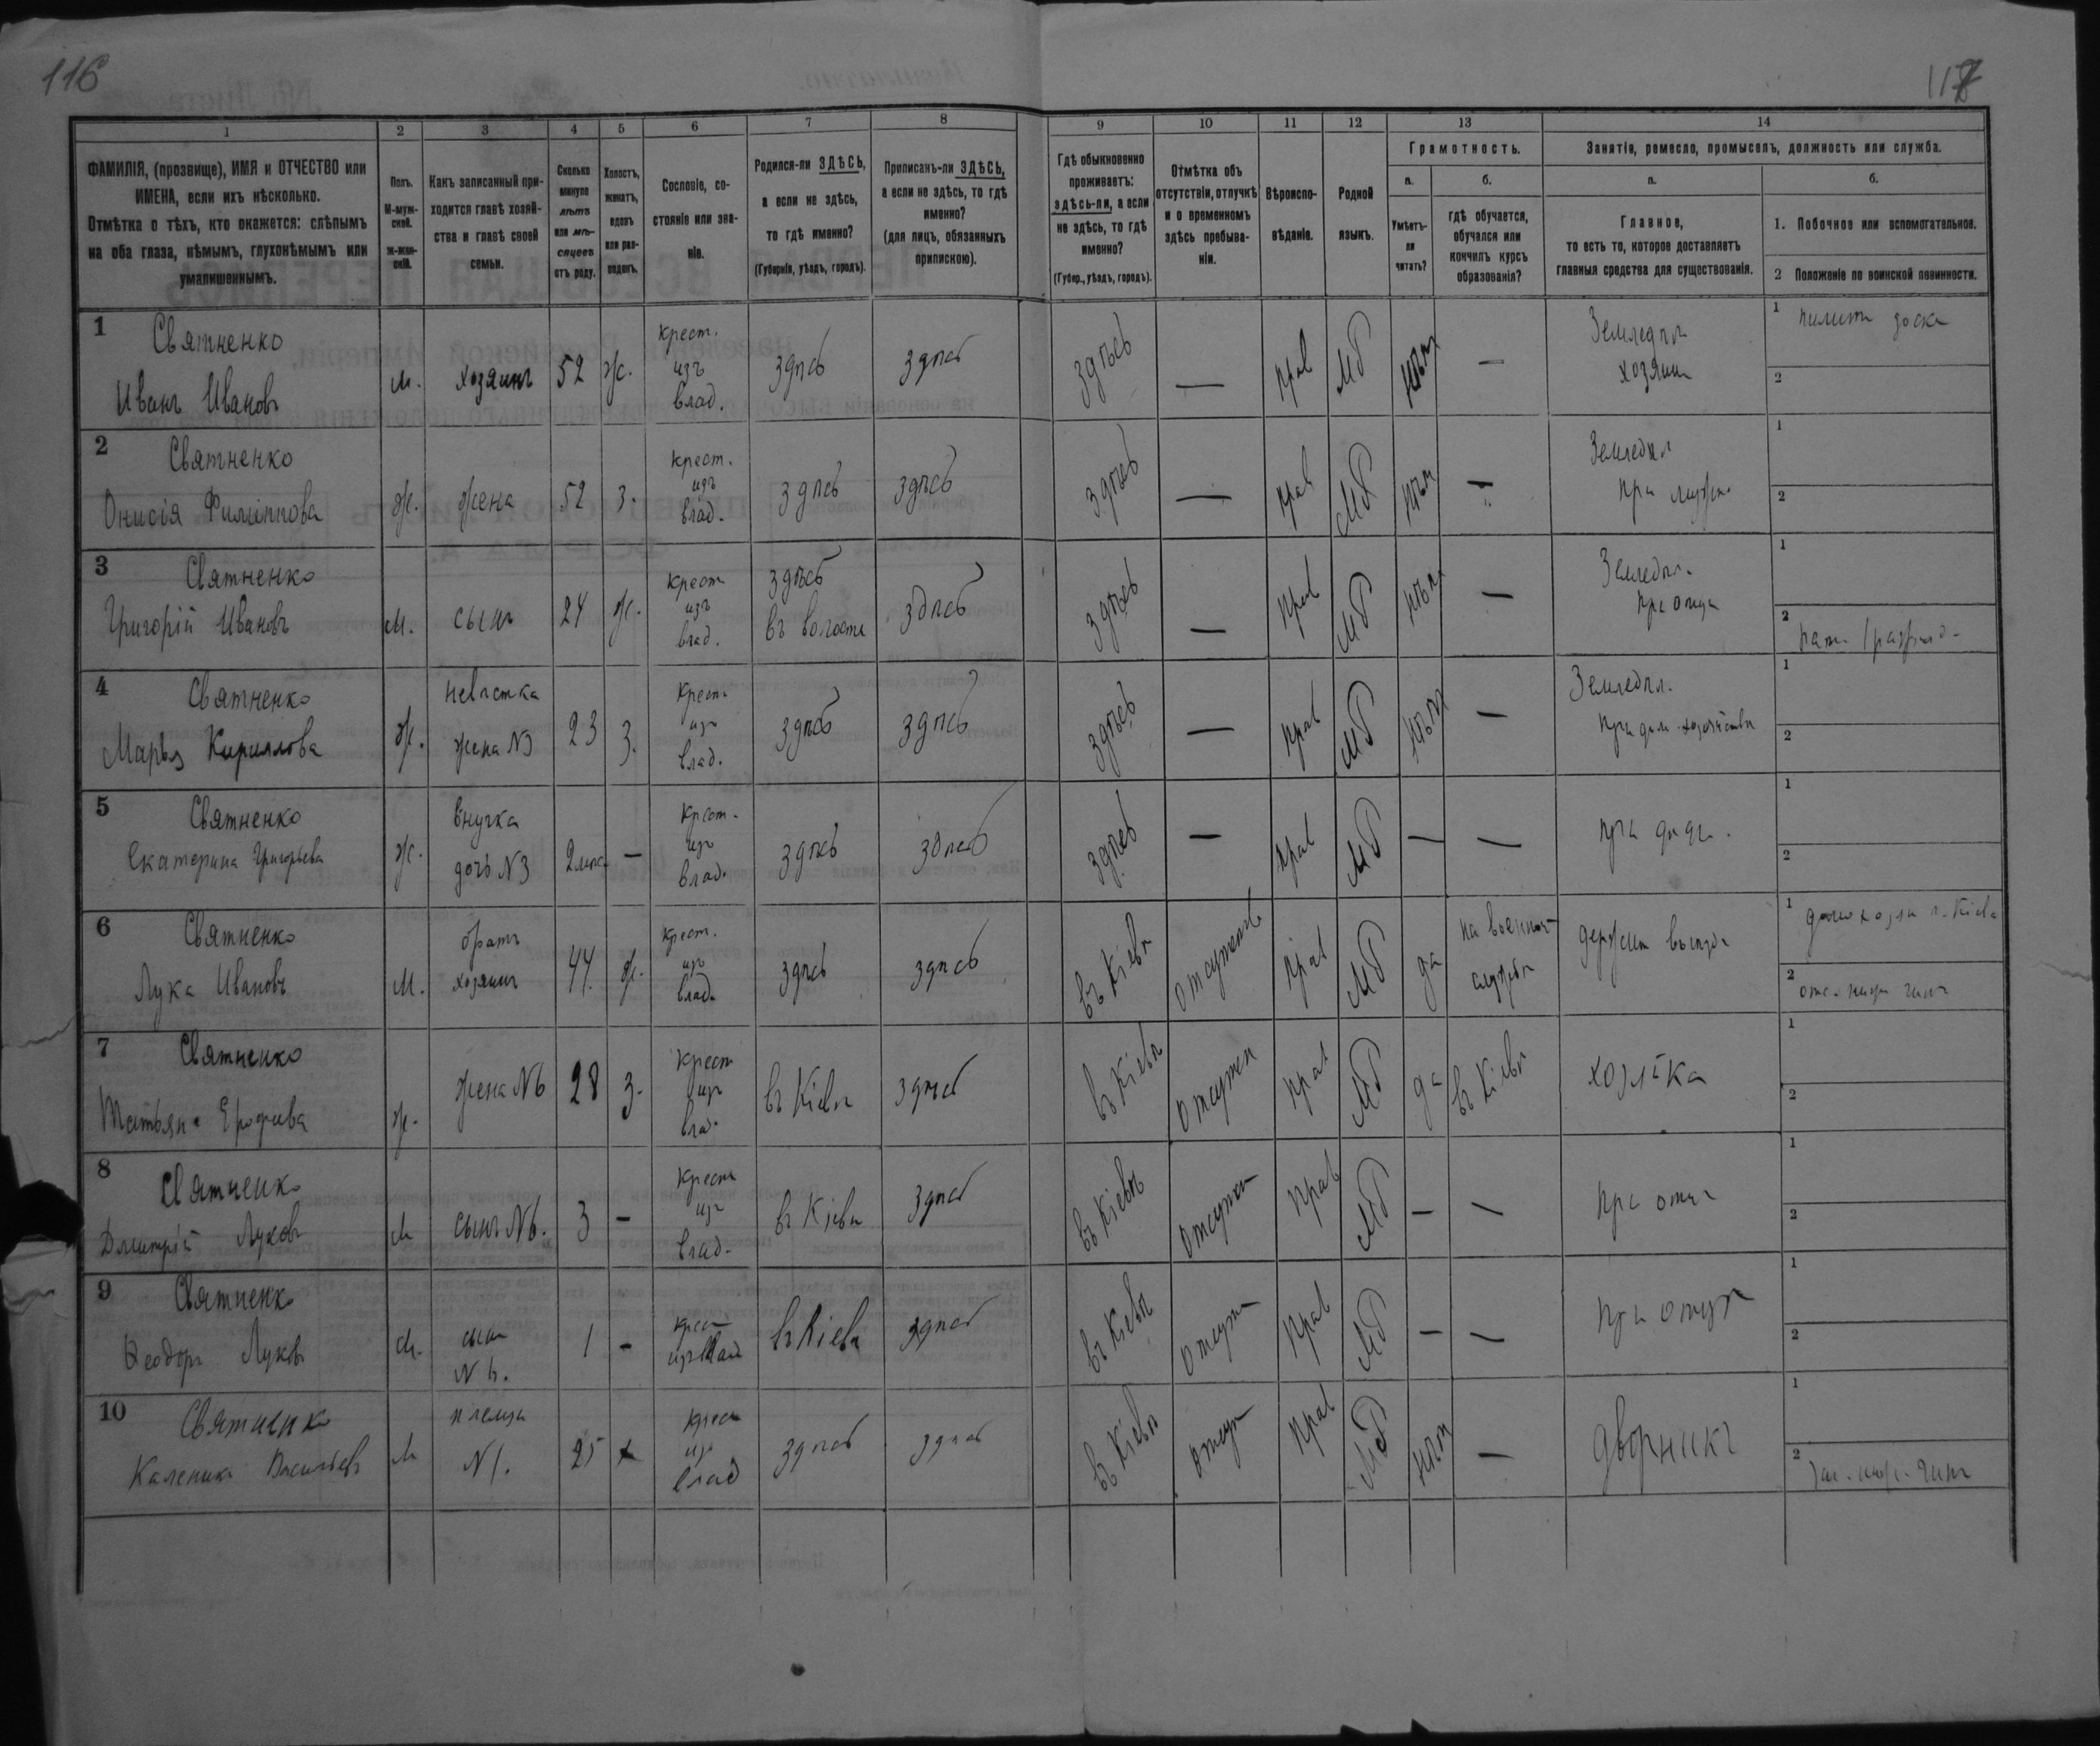 116
117
1
2
3
4
5
6
7
8
9
10
11
12
13
14
ФАМИЛІЯ, (прозвище), ИМЯ и ОТЧЕСТВО или
ИМЕНА, если ихъ нѣсколько.
Отмѣтка о тѣхъ, кто окажется: слѣпымъ
на оба глаза, нѣмымъ, глухонѣмымъ или
умалишеннымъ.
Полъ.
М-муж-
ской.
Ж-жен-
скій.
Какъ записанный при-
ходится главѣ хозяй-
ства и главѣ своей
семьи.
Сколько
минуло
лѣтъ
или мѣ-
сяцевъ
отъ роду.
Холостъ,
женатъ,
вдовъ
или раз-
веденъ.
Сословіе, со-
стояніе или зва-
ніе.
Родился-ли ЗДѢСЬ,
а если не здѣсь,
то гдѣ именно?
(Губернія, уѣздъ, городъ).
Приписанъ-ли ЗДѢСЬ,
а если не здѣсь, то гдѣ
именно?
(для лицъ, обязанныхъ
припискою).
Гдѣ обыкновенно
проживаетъ:
здѣсь-ли, а если
не здѣсь, то гдѣ
именно?
(Губер., уѣздъ, городъ).
Отмѣтка объ
отсутствіи, отлучкѣ
и о временномъ
здѣсь пребыва-
ніи.
Вѣроиспо-
вѣданіе.
Родной
языкъ.
Грамотность.
а.
Умѣетъ-
ли
читать?
б.
гдѣ обучается,
обучался или
кончилъ курсъ
образованія?
Занятія, ремесло, промыселъ, должность или служба.
а.
Главное,
то есть то, которое доставляетъ
главныя средства для существованія.
б.
1. Побочное или вспомогательное.
2 Положеніе по воинской повинности.
1 Святненко
Иванъ Ивановъ
м. хозяинъ 52 ж.
крест.
изъ
влад.
здѣсь здѣсь здѣсь — прав МР нѣтъ —
Земледѣл
хозяин
1
2
2 Святненко
Онисія Филиппова
ж. жена 52 з.
крест.
изъ
влад.
здѣсь здѣсь здѣсь — прав МР нѣт —
Земледѣл
при
1
2
3 Святненко
Григорій Ивановъ
м. сынъ 24 ж.
крест
изъ
влад.
здѣсь
въ волости
здѣсь здѣсь — прав МР нѣт —
Земледѣл.
при отцѣ
1
2
4 Святненко
Марья Кириллова
ж.
невѣстка
жена N3
23 з.
крест.
изъ
влад.
здѣсь здѣсь здѣсь — прав МР нѣт —
Земледѣл.
при дом. хозяйствѣ
1
2
5 Святненко
Екатерина Григорьева
ж.
внучка
дочь N3
2 мѣс. —
крест.
изъ
влад.
здѣсь здѣсь здѣсь — прав МР — —
при
1
2
6 Святненко
Лука Ивановъ
м.
братъ
хозяина
44. ж.
крест.
изъ
влад.
здѣсь здѣсь въ Кіевѣ прав МР да
на военной
службѣ
1
2
7 Святненко
Татьяна
ж. жена N6 28 з.
крест
изъ
влад.
въ Кіевѣ здѣсь въ Кіевѣ прав МР да въ Кіевѣ
хозяйка
1
2
8 Святненко
Дмитрій Луковъ
м сынъ N6. 3 —
крест
изъ
влад.
въ Кіевѣ здѣсь въ Кіевѣ прав МР — —
при отцѣ
1
2
9 Святненко
Ѳеодоръ Луковъ
м.
сын
N 6.
1 —
крест
из влад
въ Кіевѣ здѣсь въ Кіевѣ прав МР — —
при отцѣ
1
2
10 Святненко
Каленикъ Васильевъ
м
N 1.
25 х
крест
из
влад
здѣсь здѣсь въ Кіевѣ прав МР нѣт —
дворникъ
1
2